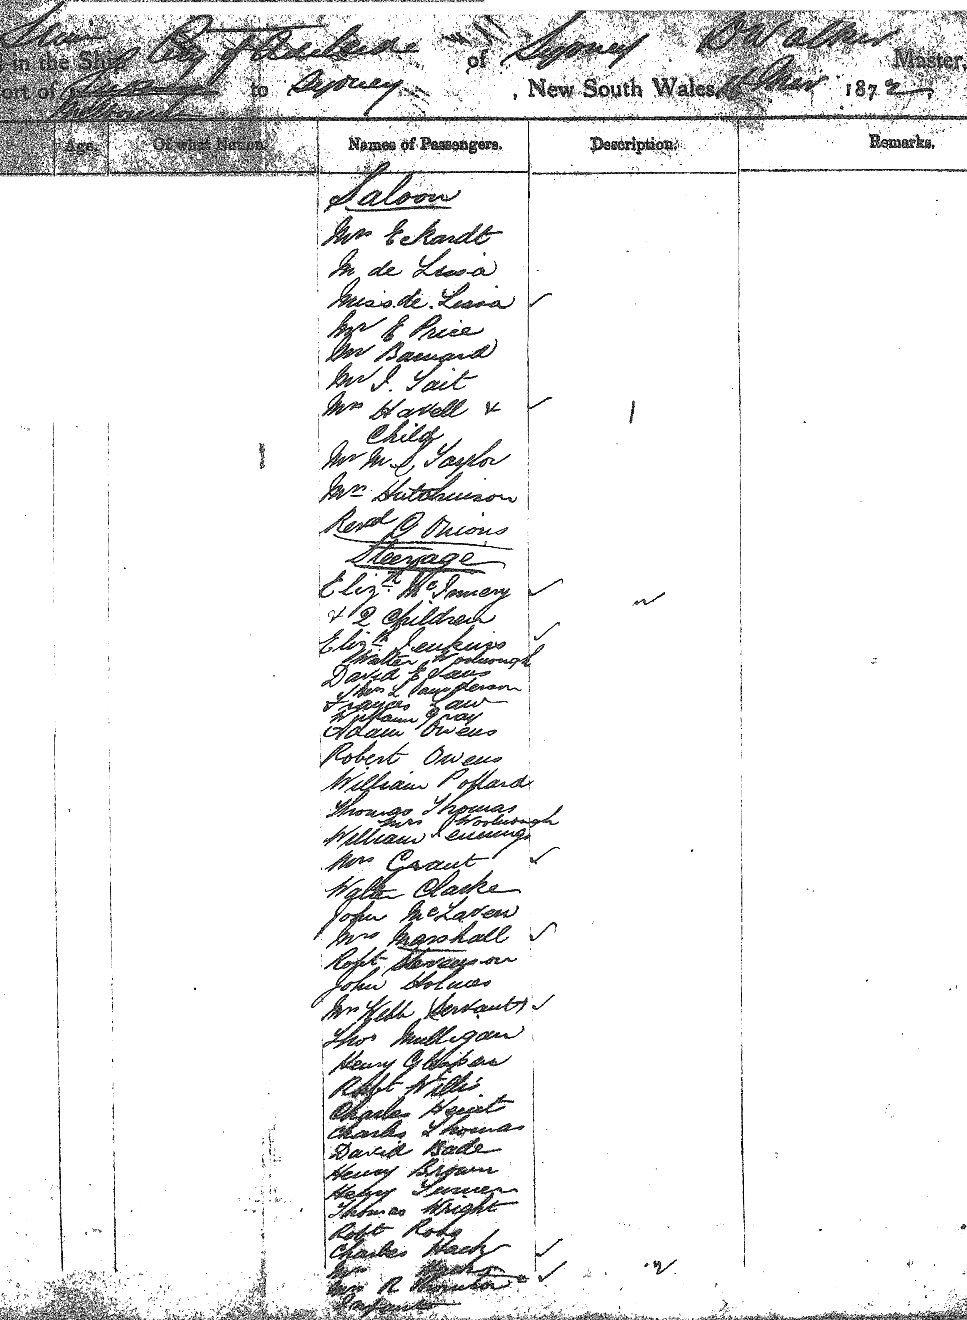 in the Ship City of Adelaide of Sydney D Walker Master,
ort of to Sydney, New South Wales, 1872
Melbourne
Age. Of what Nation. Names of Passengers. Description. Remarks.
Saloon
Mrs Eckardt
M de Lissa
Miss de Lissa
Mr E Price
Mr Barnard
Mr J. Tait
Mrs Havell &
Child
Mr M Taylor
Mrs Hutchinson
Revd G Onions
Steerage
Elizth McInnery
& 2 Children
Elizth Jenkins
Walter Woolnough
David Evans
Thos L Saunderson
Frances Law
William Gray
Adam Owens
Robert Owens
William Pollard
Thomas Thomas
Mrs Woolnough
William Jennings
Mrs Grant
Walter Clarke
John McLaren
Mrs Marshall
Robt Stevenson
John Holmes
Mrs Webb (Servant)
Thos Mulligan
Henry
Robt Willis
Charles
Charles Thomas
David Bade
Henry Brown
Henry Turner
Thomas Wright
Robt Ross
Charles Hack
Mrs
Mrs R
Infant